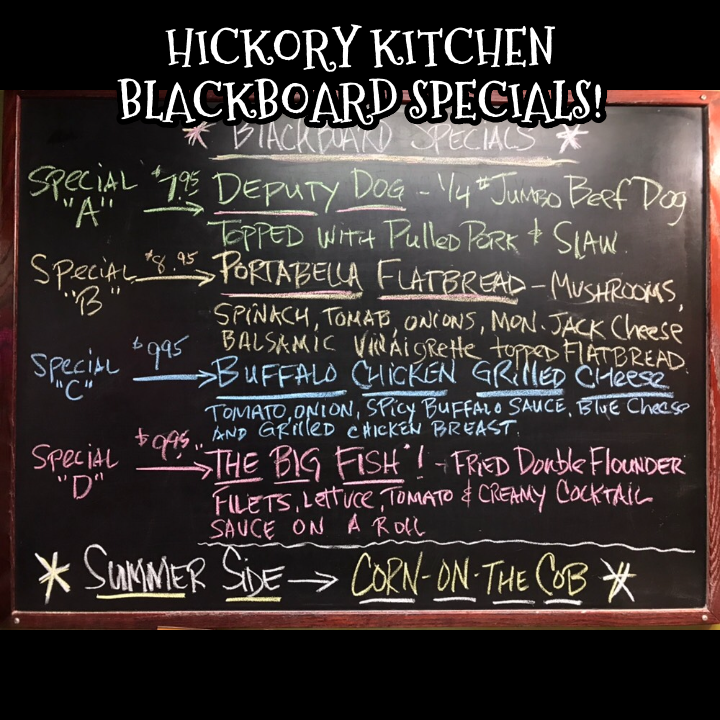 HICKORY KITCHEN
BLACKBOARD SPECIALS!
* BLACKBOARD SPECIALS *
SPECIAL "A" $7.95 → DEPUTY DOG - 1/4# JUMBO BEEF DOG
TOPPED WITH PULLED PORK & SLAW
SPECIAL "B" $8.95 → PORTABELLA FLATBREAD - MUSHROOMS,
SPINACH, TOMATO, ONIONS, MON. JACK CHEESE
BALSAMIC VINAIGRETTE TOPPED FLATBREAD.
SPECIAL "C" $9.95 → BUFFALO CHICKEN GRILLED CHEESE
TOMATO, ONION, SPICY BUFFALO SAUCE, BLUE CHEESE
AND GRILLED CHICKEN BREAST.
SPECIAL "D" $9.95 → "THE BIG FISH"! - FRIED DOUBLE FLOUNDER
FILETS, LETTUCE, TOMATO & CREAMY COCKTAIL
SAUCE ON A ROLL
* SUMMER SIDE → CORN-ON-THE COB *